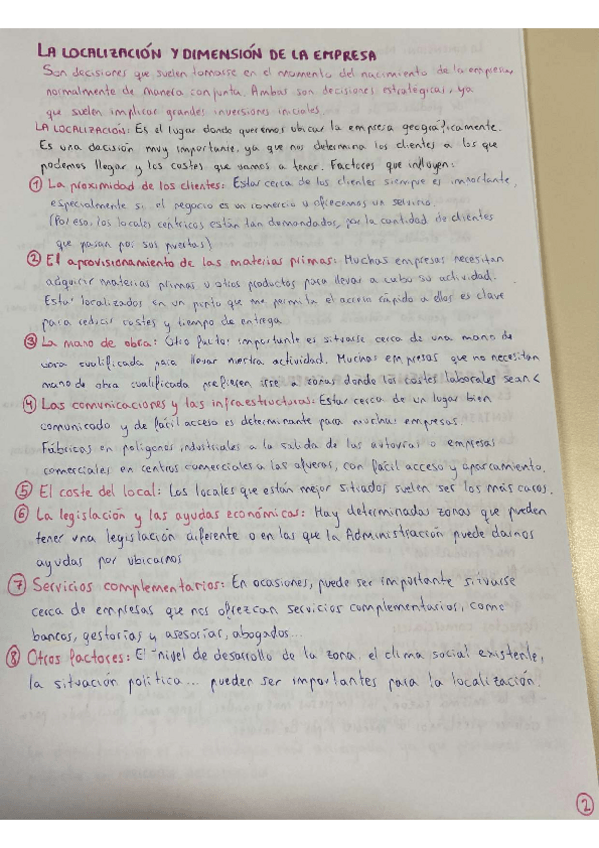 LA LOCALIZACIÓN Y DIMENSIÓN DE LA EMPRESA
Son decisiones que suelen tomarse en el momento del nacimiento de la empresa,
normalmente de manera conjunta. Ambas son decisiones estratégicas, ya
que suelen implicar grandes inversiones iniciales.
LA LOCALIZACIÓN: Es el lugar donde queremos ubicar la empresa geográficamente.
Es una decisión muy importante, ya que nos determina los clientes a los que
podemos llegar y los costes que vamos a tener. Factores que influyen:
① La proximidad de los clientes: Estar cerca de los clientes siempre es importante,
especialmente si el negocio es un comercio u ofrecemos un servicio.
(Por eso, los locales céntricos están tan demandados, por la cantidad de clientes
que pasan por sus puertas)
② El aprovisionamiento de las materias primas: Muchas empresas necesitan
adquirir materias primas u otros productos para llevar a cabo su actividad.
Estar localizados en un punto que me permita el acceso rápido a ellos es clave
para reducir costes y tiempo de entrega.
③ La mano de obra: Otro factor importante es situarse cerca de una mano de
obra cualificada para llevar nuestra actividad. Muchas empresas que no necesitan
mano de obra cualificada prefieren irse a zonas donde los costes laborales sean <
④ Las comunicaciones y las infraestructuras: Estar cerca de un lugar bien
comunicado y de fácil acceso es determinante para muchas empresas.
Fábricas en polígonos industriales a la salida de las autovías o empresas
comerciales en centros comerciales a las afueras, con fácil acceso y aparcamiento.
⑤ El coste del local: Los locales que están mejor situados suelen ser los más caros.
⑥ La legislación y las ayudas económicas: Hay determinadas zonas que pueden
tener una legislación diferente o en las que la Administración puede darnos
ayudas por ubicarnos
⑦ Servicios complementarios: En ocasiones, puede ser importante situarse
cerca de empresas que nos ofrezcan servicios complementarios, como
bancos, gestorías y asesorías, abogados...
⑧ Otros factores: El nivel de desarrollo de la zona, el clima social existente,
la situación política... pueden ser importantes para la localización.
②